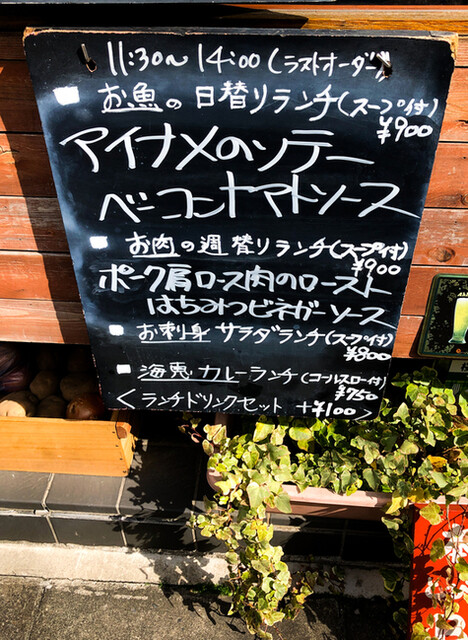 11:30〜14:00(ラストオーダー)
■お魚の日替りランチ(スープ付)
¥900
アイナメのソテー
ベーコントマトソース
■お肉の週替りランチ(スープ付)
¥900
ポーク肩ロース肉のロースト
はちみつビネガーソース
■お刺身サラダランチ(スープ付)
¥900
■海恵カレーランチ(コールスロー付)
¥750
<ランチドリンクセット +¥100>